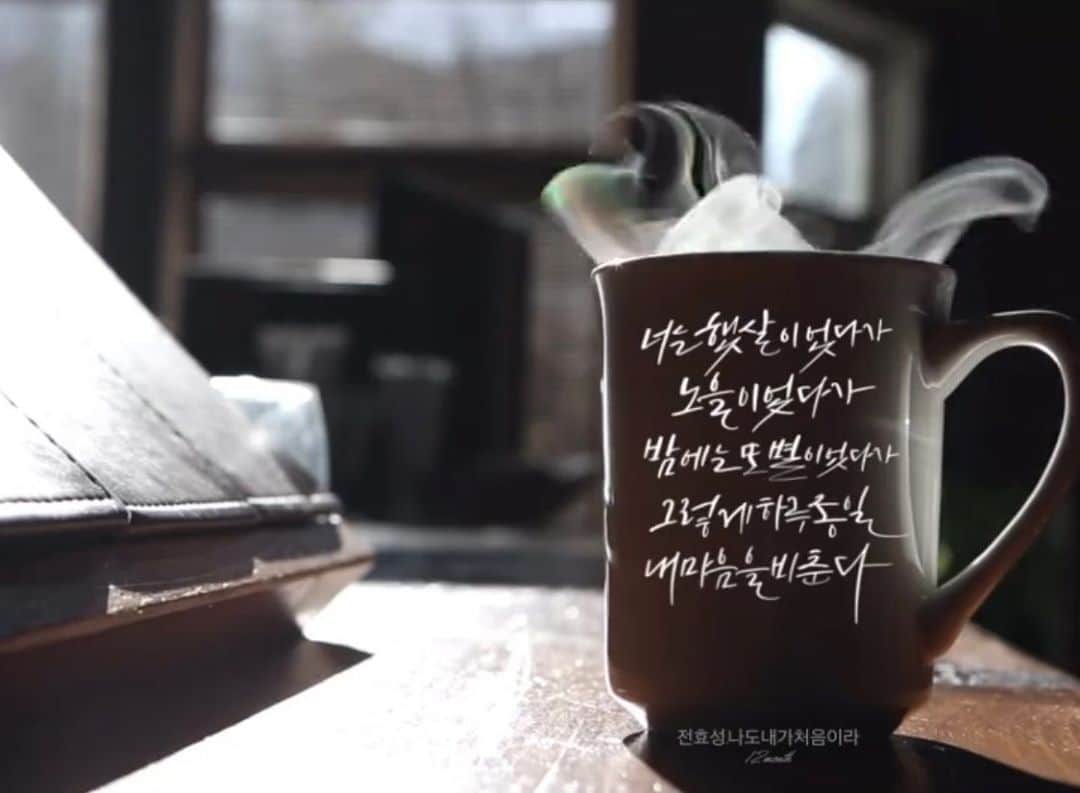 너는 햇살이었다가
노을이었다가
밤에는 또 별이었다가
그렇게 하루종일
내 마음을 비춘다
전효성.나도내가처음이라
12month